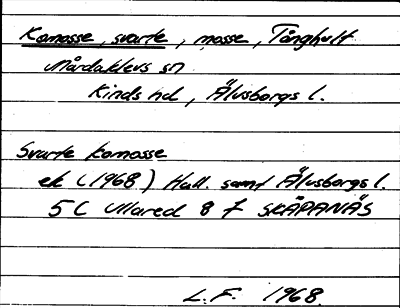 Komosse, svarte, mosse, Tånghult
Mårdaklevs sn
Kinds hd, Älvsborgs l.
Svarte komosse
ek (1968) Hall. samt Älvsborgs l.
5C Ullared 8 f SKÄPANÄS
L.F. 1968